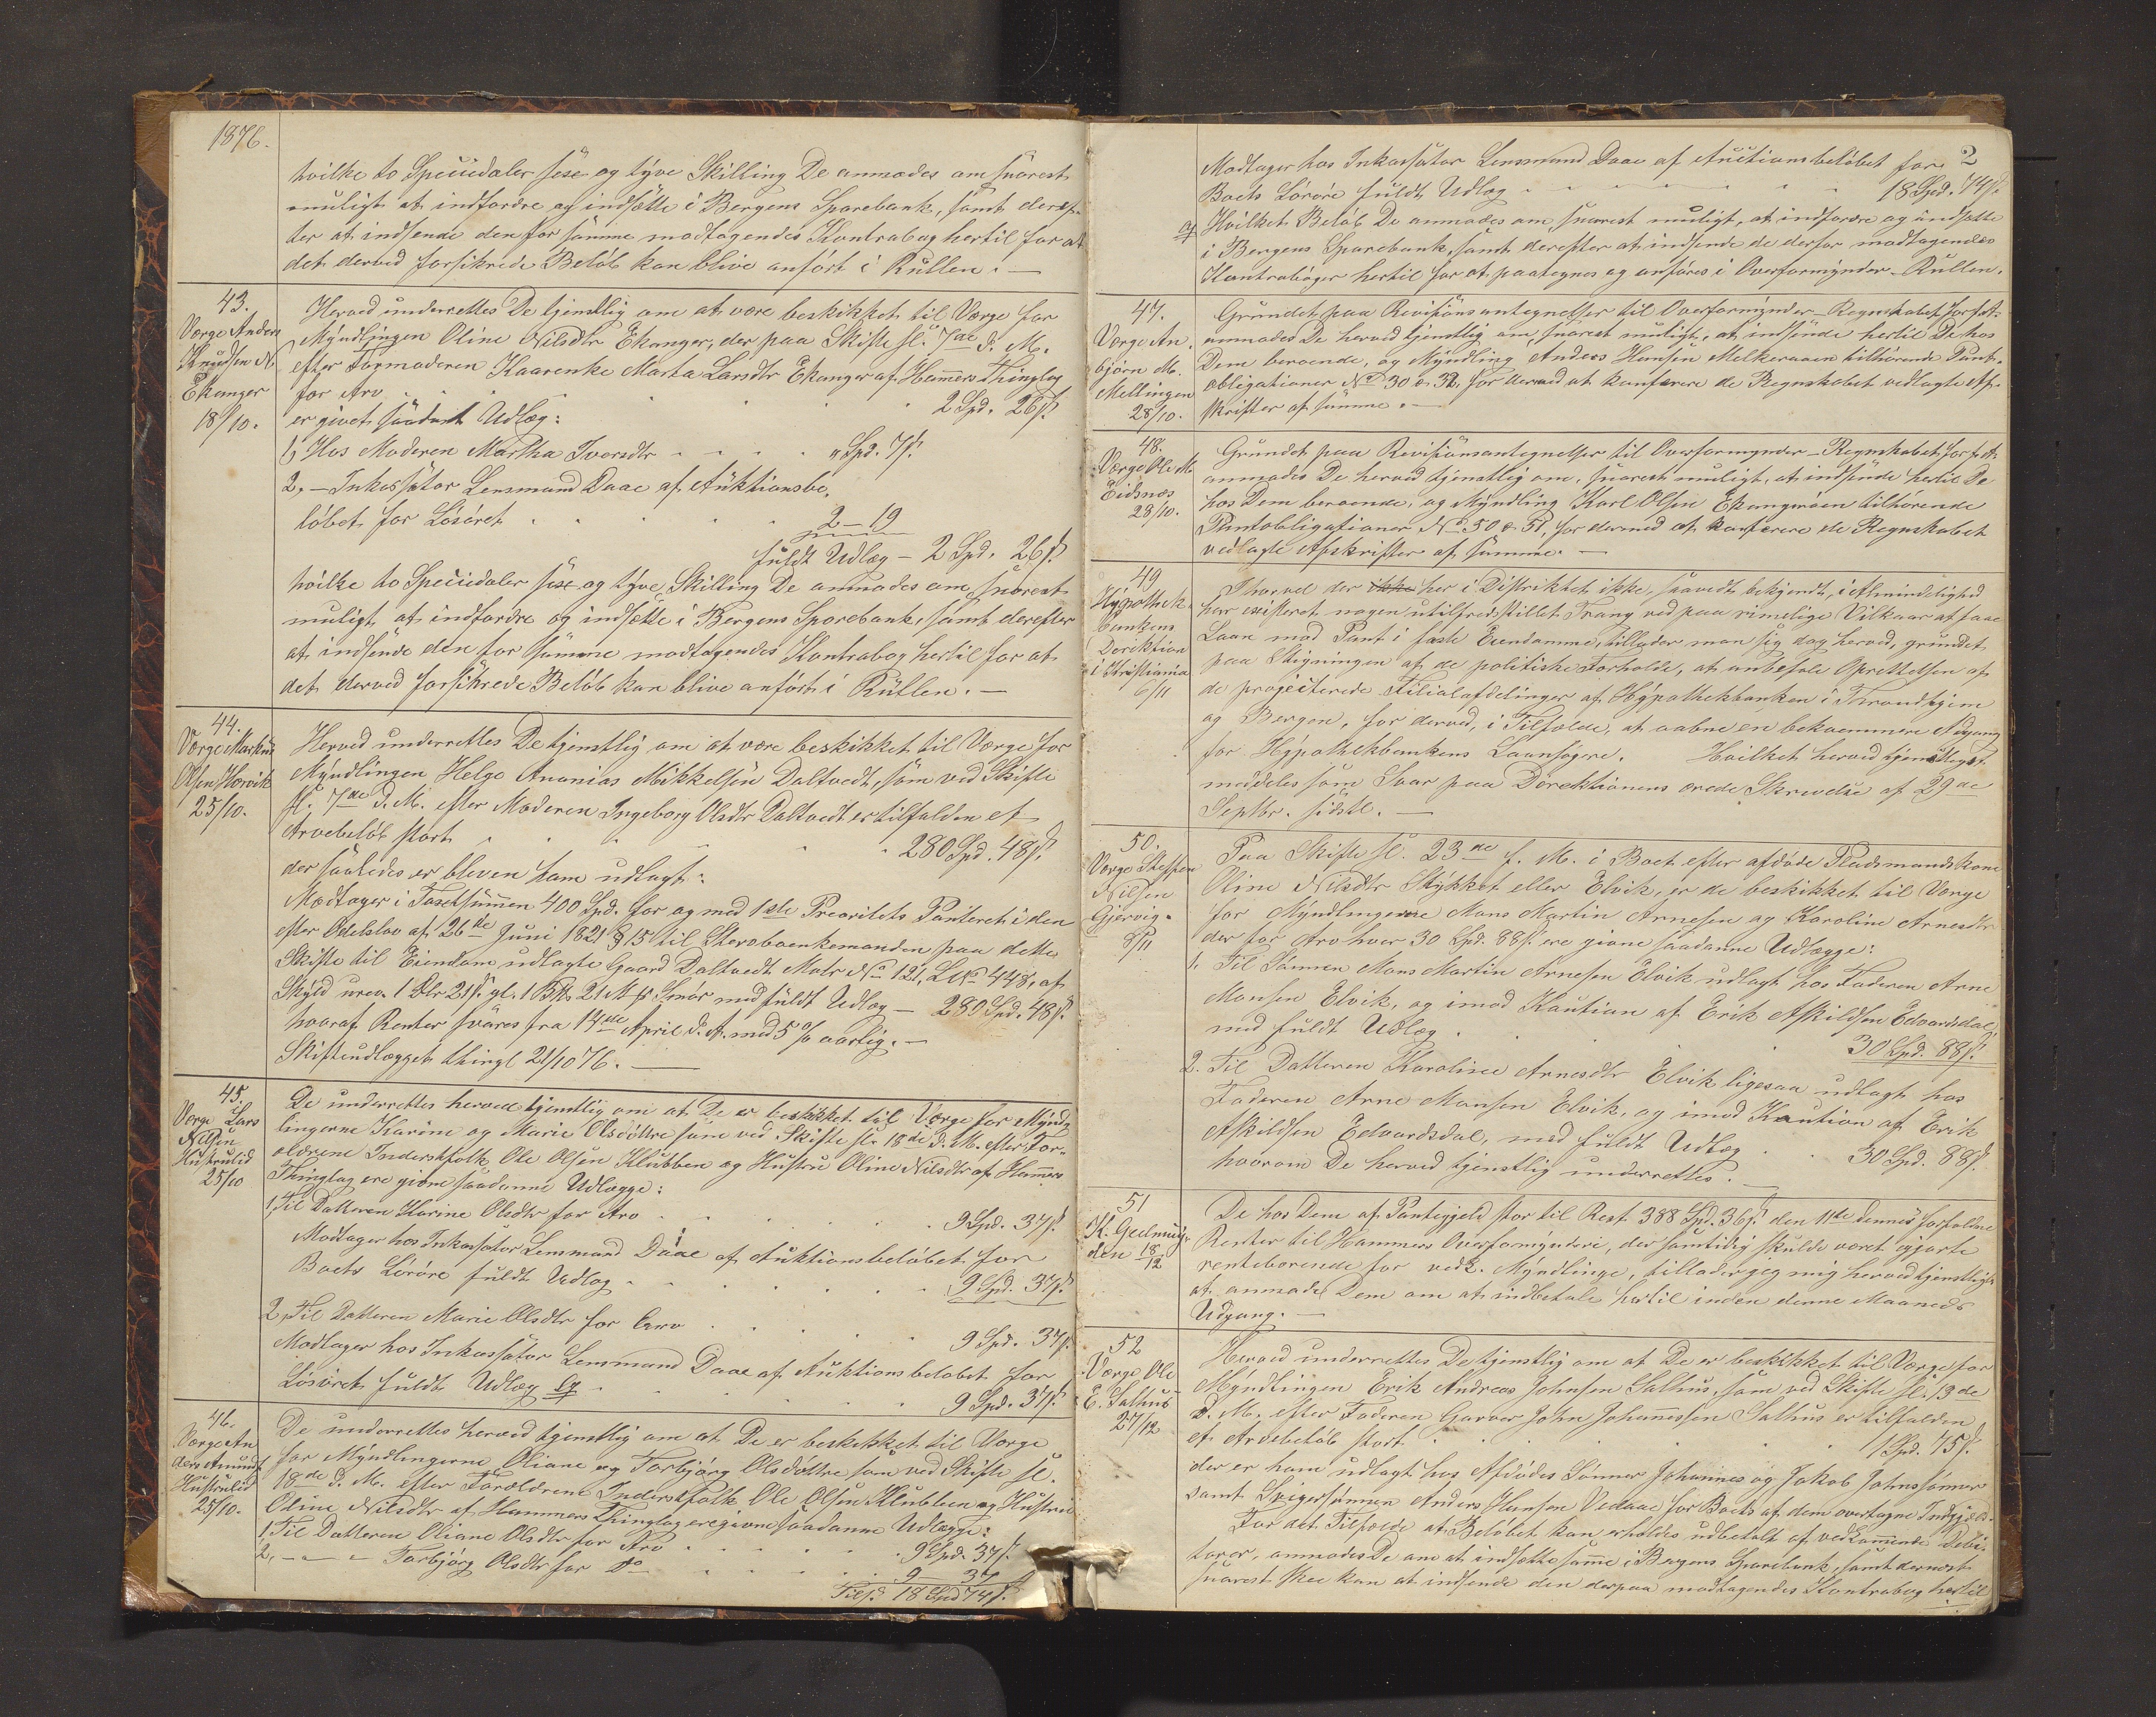 1876.
hvilke to Speciedaler sex og tyve Skilling De anmodes om snarest
muligt at indfordre og indsætte i Bergens Sparebank, samt deref-
ter at indsende den for samme modtagendes Kontrabog hertil for at
det derved forsikrede Beløb kan blive anført i Rullen. —
43.
Værge Anders
Knudsen N.
Ekanger
18/10.
Herved underrettes De tjenstlig om at være beskikket til Værge for
Myndlingen Oline Nilsdtr Ekanger, der paa Skifte sl. 7de d. M.
efter Formoderen Kaarenke Marta Larsdtr Ekanger af Hamers Thinglag
for Arv . . . . . 2 Spd. 26 s.
er givet saadant Udlæg:
1, Hos Moderen Martha Iversdtr . . . . " Spd. 7 s.
2, — Inkassator Lensmand Daae af Auktionsbe-
løbet for Løsøret . . . . . 2 — 19
fuldt Udlæg — 2 Spd. 26 s.
hvilke to Speciedaler sex og tyve Skilling De anmodes om snarest
muligt at indfordre og indsætte i Bergens Sparebank, samt derefter
at indsende den for samme modtagendes Kontrabog hertil for at
det derved forsikrede Beløb kan blive anført i Rullen. —
44.
Værge Markus
Olsen Horvik
25/10.
Herved underrettes De tjenstlig om at være beskikket til Værge for
Myndlingen Helge Ananias Mikkelsen Daltvedt, som ved Skifte
sl. 7de d. M. efter Moderen Ingeborg Olsdtr Daltvedt er tilfalden et
Arvebeløb stort . . . . . 280 Spd. 48 s.
der saaledes er bleven ham udlagt:
Modtager i Taxtsummen 400 Spd. for og med 1ste Prioritets Panteret i den
efter Odelslov af 26de Juni 1821 § 15 til Stervboenkemanden paa dette
Skifte til Eiendom udlagte Gaard Daltvedt Matr No 121, LNo 448, af
Skyld urev. 1 Dlr 21 s. gl. 1 Bpd 21 Mk Smør med fuldt Udlæg — 280 Spd. 48 s.
hvoraf Renter svares fra 14de April d. A. med 5 % aarlig. —
Skifteudlægget thingl 21/10 76. —
45.
Værge Lars
Nilsen
Hustrulid
25/10
De underrettes herved tjenstlig om at De er beskikket til Værge for Mynd-
lingerne Karine og Marie Olsdøttre som ved Skifte sl. 18de d. M. efter For-
ældrene Inderstfolk Ole Olsen Klubben og Hustru Oline Nilsdtr af Hamers
Thinglag ere givne saadanne Udlægge:
1, Til Datteren Karine Olsdtr for Arv . . . . . 9 Spd. 37 s.
Modtager hos Inkassator Lensmand Daae af Auktionsbeløbet for
Boets Løsøre fuldt Udlæg . . . . . 9 Spd. 37 s.
2, Til Datteren Marie Olsdtr for Arv . . . . . 9 Spd. 37 s.
Modtager hos Inkassator Lensmand Daae af Auktionsbeløbet for
Løsøret fuldt Udlæg . . . . . 9 Spd. 37 s.
46.
Værge An-
ders Amunds
Hustrulid
25/10.
De underrettes herved tjenstlig om at De er beskikket til Værge
for Myndlingerne Oliane og Torbjørg Olsdøttre som ved Skifte sl.
18de d. M. efter Forældrene Inderstfolk Ole Olsen Klubben og Hustru
Oline Nilsdtr af Hammers Thinglag ere givne saadanne Udlægge:
1, Til Datteren Oliane Olsdtr for Arv . . . . . 9 Spd. 37 s.
2, — — — Torbjørg Olsdtr for Do . . . . . 9 37
18 Spd 74 s.
2
Modtager hos Inkassator Lensmand Daae af Auctionsbeløbet for
Boets Løsøre fuldt Udlæg . . . . . 18 Spd. 74 s.
Hvilket Beløb De anmodes om, snarest muligt, at indfordre og indsætte
i Bergens Sparebank, samt derefter at indsende de derfor modtagendes
Kontrabøger hertil for at paategnes og anføres i Overformynder-Rullen.
47.
Værge An-
bjørn M.
Mellingen
28/10.
Grundet paa Revisionsantegnelser til Overformynder-Regnskabet for f. A.
anmodes De herved tjenstlig om, snarest muligt, at indsende hertil De hos
Dem beroende, og Myndling Anders Hansen Melkeraaen tilhørende Pant-
obligationer No 30 & 32, for derved at konferere de Regnskabet vedlagte Af-
skrifter af samme. —
48.
Værge Ole M.
Eidsnæs
28/10.
Grundet paa Revisionsantegnelser til Overformynder-Regnskabet for f. A.
anmodes De herved tjenstlig om, snarest muligt, at indsende hertil De
hos Dem beroende, og Myndling Karl Olsen Ekangerøen tilhørende
Pantobligationer No 50 & 51, for dermed at konferere de Regnskabet
vedlagte Afskrifter af samme. —
49
Hypothek-
bankens
Direktion
i Kristiania
6/11
Ihvorvel der ikke her i Distriktet ikke, saavidt bekjendt, i Almindelighed
har existeret nogen utilfredsstillet Trang ved paa rimelige Vilkaar at faae
Laan mod Pant i faste Eiendomme, tillader man sig dog herved, grundet
paa Stigningen af de politiske Forholde, at anbefale Oprettelsen af
de projecterede Filialafdelinger af Hypothekbanken i Throndhjem
og Bergen, for derved, i Tilfælde, at aabne en bekvemmere Adgang
for Hypothekbankens Laansøgere. Hvilket herved tjenstligst
meddeles som Svar paa Direktionens ærede Skrivelse af 29de
Septbr. sidstl. —
50.
Værge Steffen
Nilsen
Gjervig.
8/11
Paa Skifte sl. 23de f. M. i Boet efter afdøde Pladsmandskone
Oline Nilsdtr Stykket eller Elvik, er de beskikket til Værge
for Myndlingerne Mons Martin Arnesen og Karoline Arnesdtr
der for Arv hver 30 Spd. 88 s. ere givne saadanne Udlægge:
1. Til Sønnen Mons Martin Arnesen Elvik udlagt hos Faderen Arne
Monsen Elvik, og imod Kaution af Erik Askildsen Edvardsdal,
med fuldt Udlæg . . . . . 30 Spd. 88 s.
2. Til Datteren Karoline Arnesdtr Elvik ligesaa udlagt hos
Faderen Arne Monsen Elvik, og imod Kaution af Erik
Askildsen Edvardsdal, med fuldt Udlæg . . 30 Spd. 88 s.
hvorom De herved tjenstlig underrettes. —
51
18/12
De hos Dem af Pantegjeld stor til Rest 388 Spd. 36 s. den 11te dennes forfaldne
Renter til Hammers Overformynderi, der samtidig skulde været gjorte
rentebærende for vedk. Myndlinge, tillader jeg mig herved tjenstligst
at anmode Dem om at indbetale hertil inden denne Maaneds
Udgang. —
52
Værge Ole
E. Salhus
27/12
Herved underrettes De tjenstlig om at De er beskikket til Værge for
Myndlingen Erik Andreas Johnsen Salhus, som ved Skifte sl. 13de
d. M. efter Faderen Garver John Johannessen Salhus er tilfalden
et Arvebeløb stort . . . . . 1 Spd. 45 s.
der er ham udlagt hos Afdødes Sønner Johannes og Jakob Johnssønner
samt Svigersønnen Anders Hansen Vedaae for Boets af dem overtagne Indgjæld.
For det Tilfælde at Beløbet kan erholdes udbetalt af vedkommende Debi-
torer, anmodes De om at indsætte samme i Bergens Sparebank, samt dernæst
snarest skee kan at indsende den derpaa modtagendes Kontrabog hertil